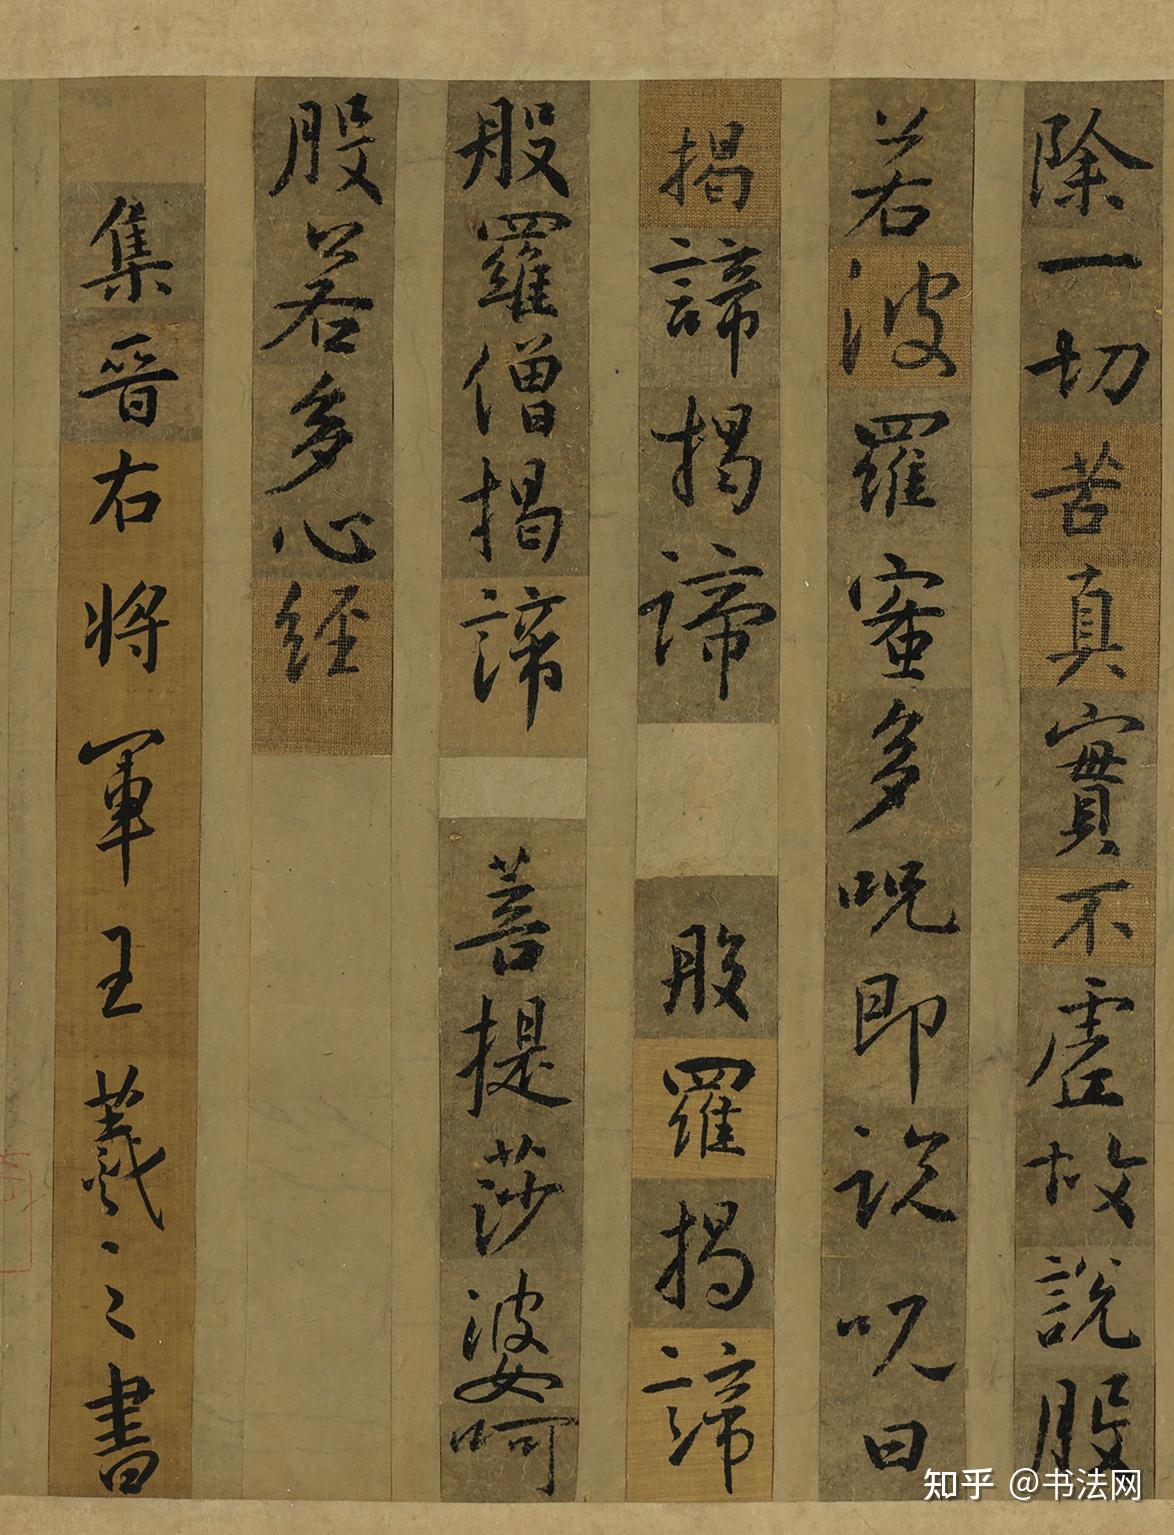 除一切苦真實不虛故說般
若波羅蜜多呪即說呪曰
揭諦揭諦 般羅揭諦
般羅僧揭諦 菩提莎婆呵
般若多心經
集晉右將軍王羲之書
知乎 @书法网